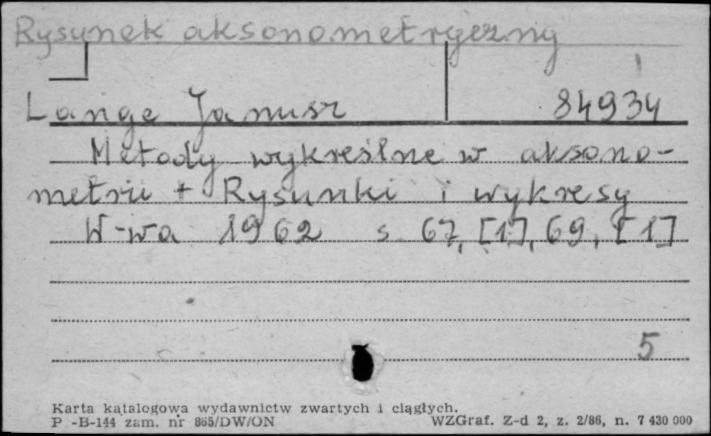 Rysunek aksonometryczny
Lange Janusz 84934
Metody wykreślne w aksono-
metrii + Rysunki i wykresy
W-wa 1962 s. 67, [1], 69, [1]
5
Karta katalogowa wydawnictw zwartych i ciągłych.
P -B-144 zam. nr 865/DW/ON WZGraf. Z-d 2, z. 2/86, n. 7 430 000